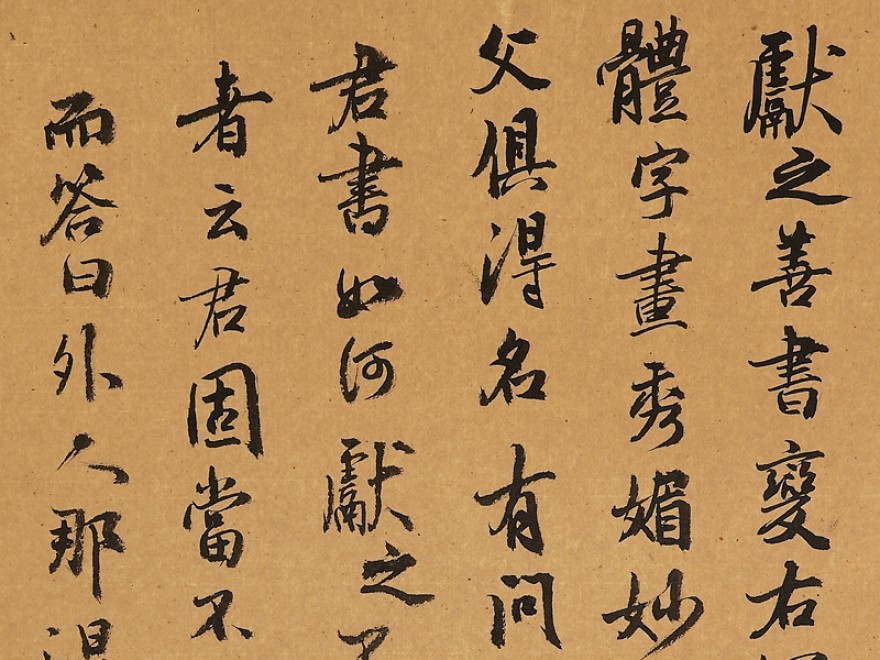 獻之善書變右
體字畫秀媚妙
父俱得名有問
君書如何獻之
者云君固當不
而答曰外人那